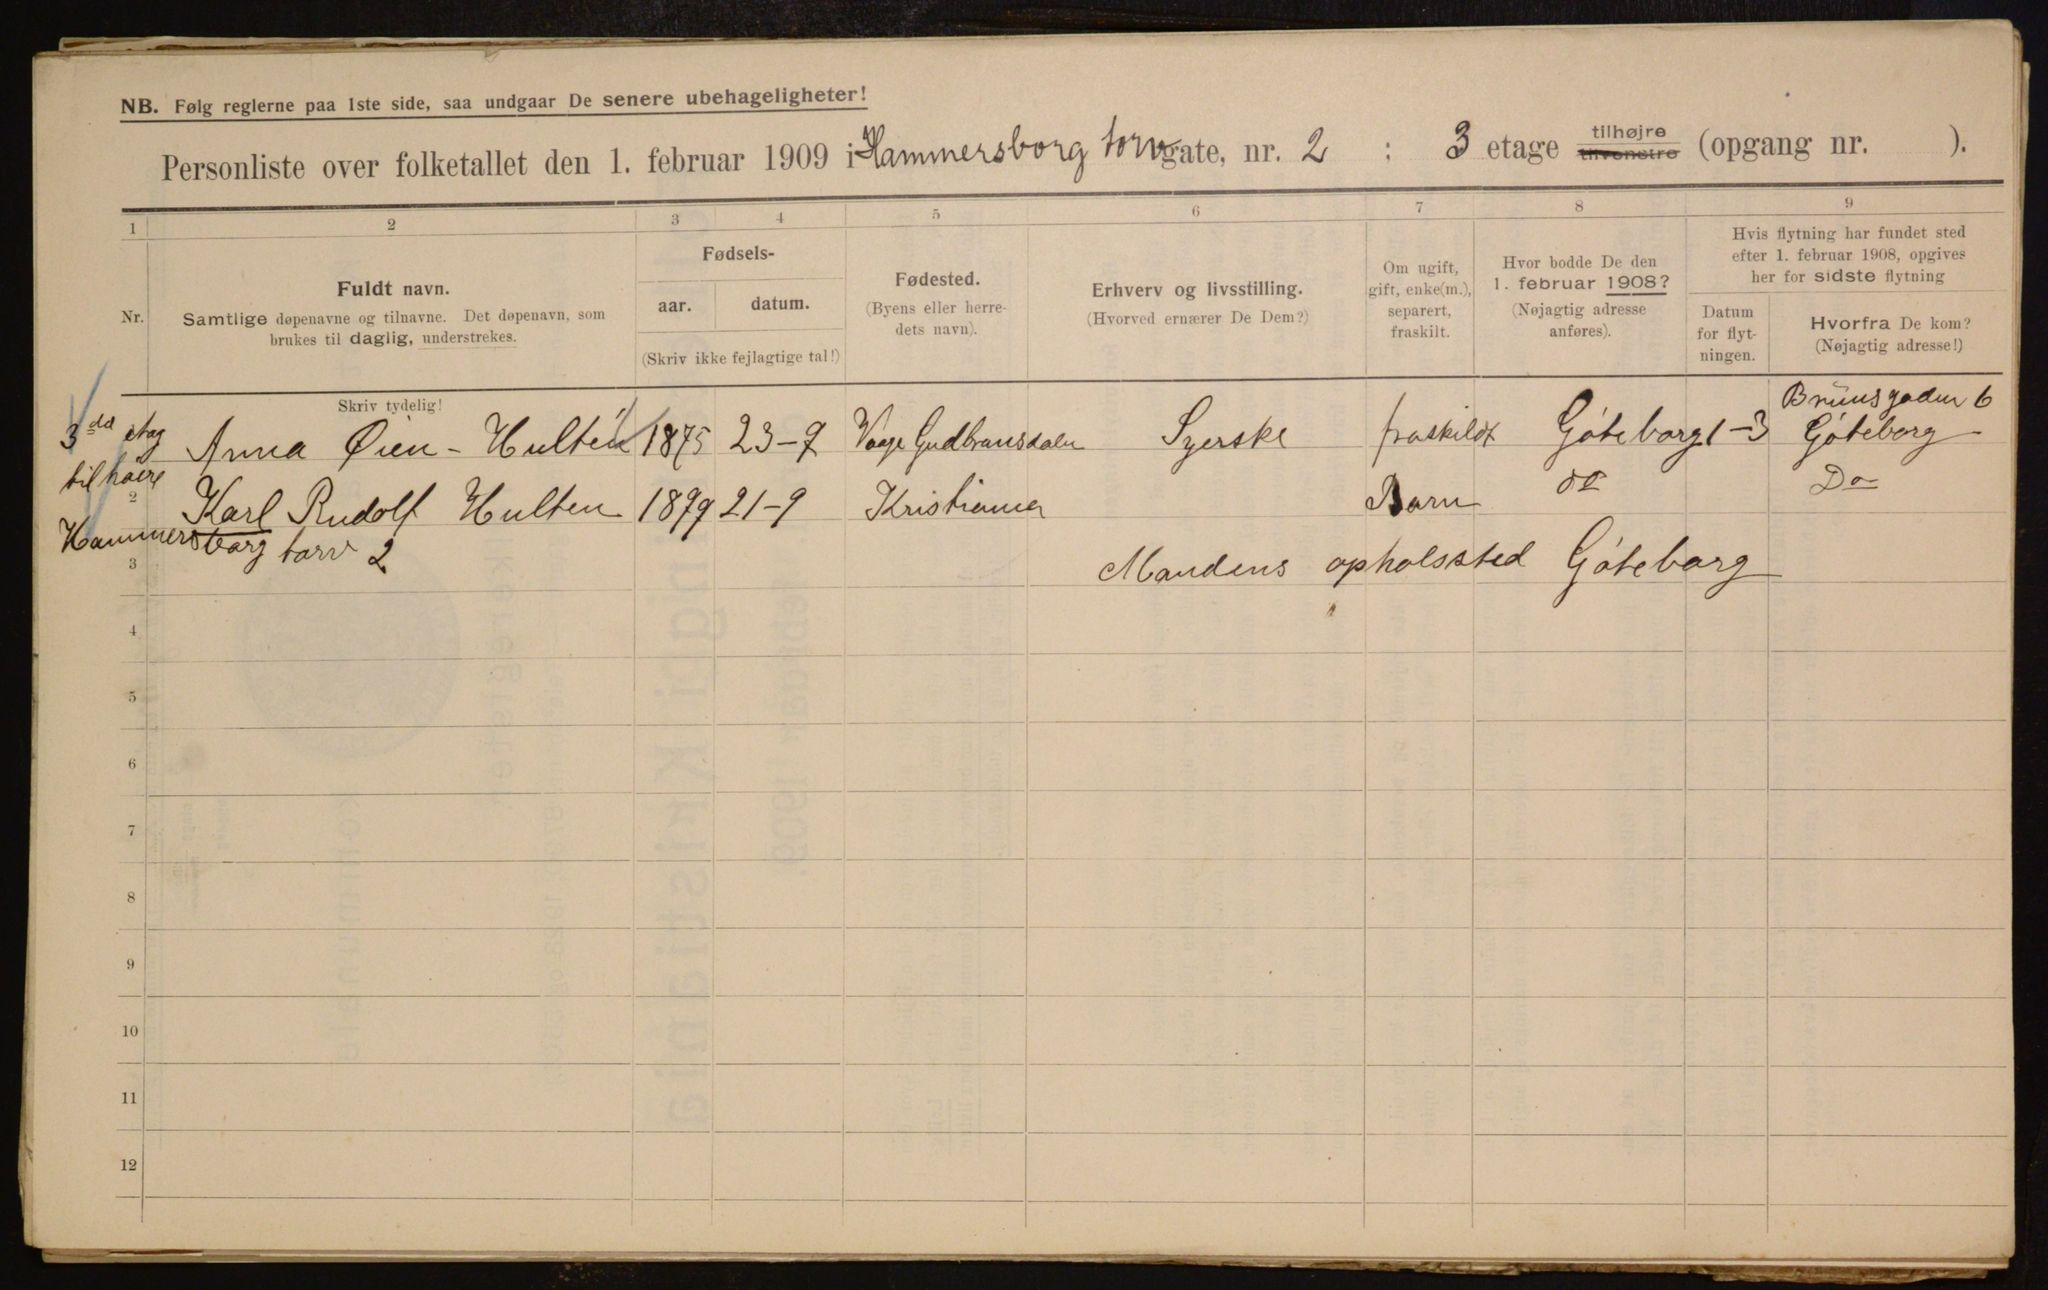 NB. Følg reglerne paa 1ste side, saa undgaar De senere ubehageligheter!
Personliste over folketallet den 1. februar 1909 i Hammersborg torv gate, nr. 2 : 3 etage tilhøjre tilvenstre (opgang nr. ).
1 2 3 4 5 6 7 8 9
Nr.
Fuldt navn.
Samtlige døpenavne og tilnavne. Det døpenavn, som
brukes til daglig, understrekes.
Fødsels-
aar. datum.
(Skriv ikke fejlagtige tal!)
Fødested.
(Byens eller herre-
dets navn).
Erhverv og livsstilling.
(Hvorved ernærer De Dem?)
Om ugift,
gift, enke(m.),
separert,
fraskilt.
Hvor bodde De den
1. februar 1908?
(Nøjagtig adresse
anføres).
Hvis flytning har fundet sted
efter 1. februar 1908, opgives
her for sidste flytning
Datum
for flyt-
ningen.
Hvorfra De kom?
(Nøjagtig adresse!)
Skriv tydelig!
3dd etag
til høire
Hammersborg torv 2
Anna Øien - Hultén 1875 23-9 Vage Gudbransdalen Syerske fraskildt Göteborg 1-3 Brünsgaden 6
Göteborg
2 Karl Rudolf Hulten 1899 21-9 Kristiania Barn do Do
3 Mandens opholssted Göteborg
4
5
6
7
8
9
10
11
12